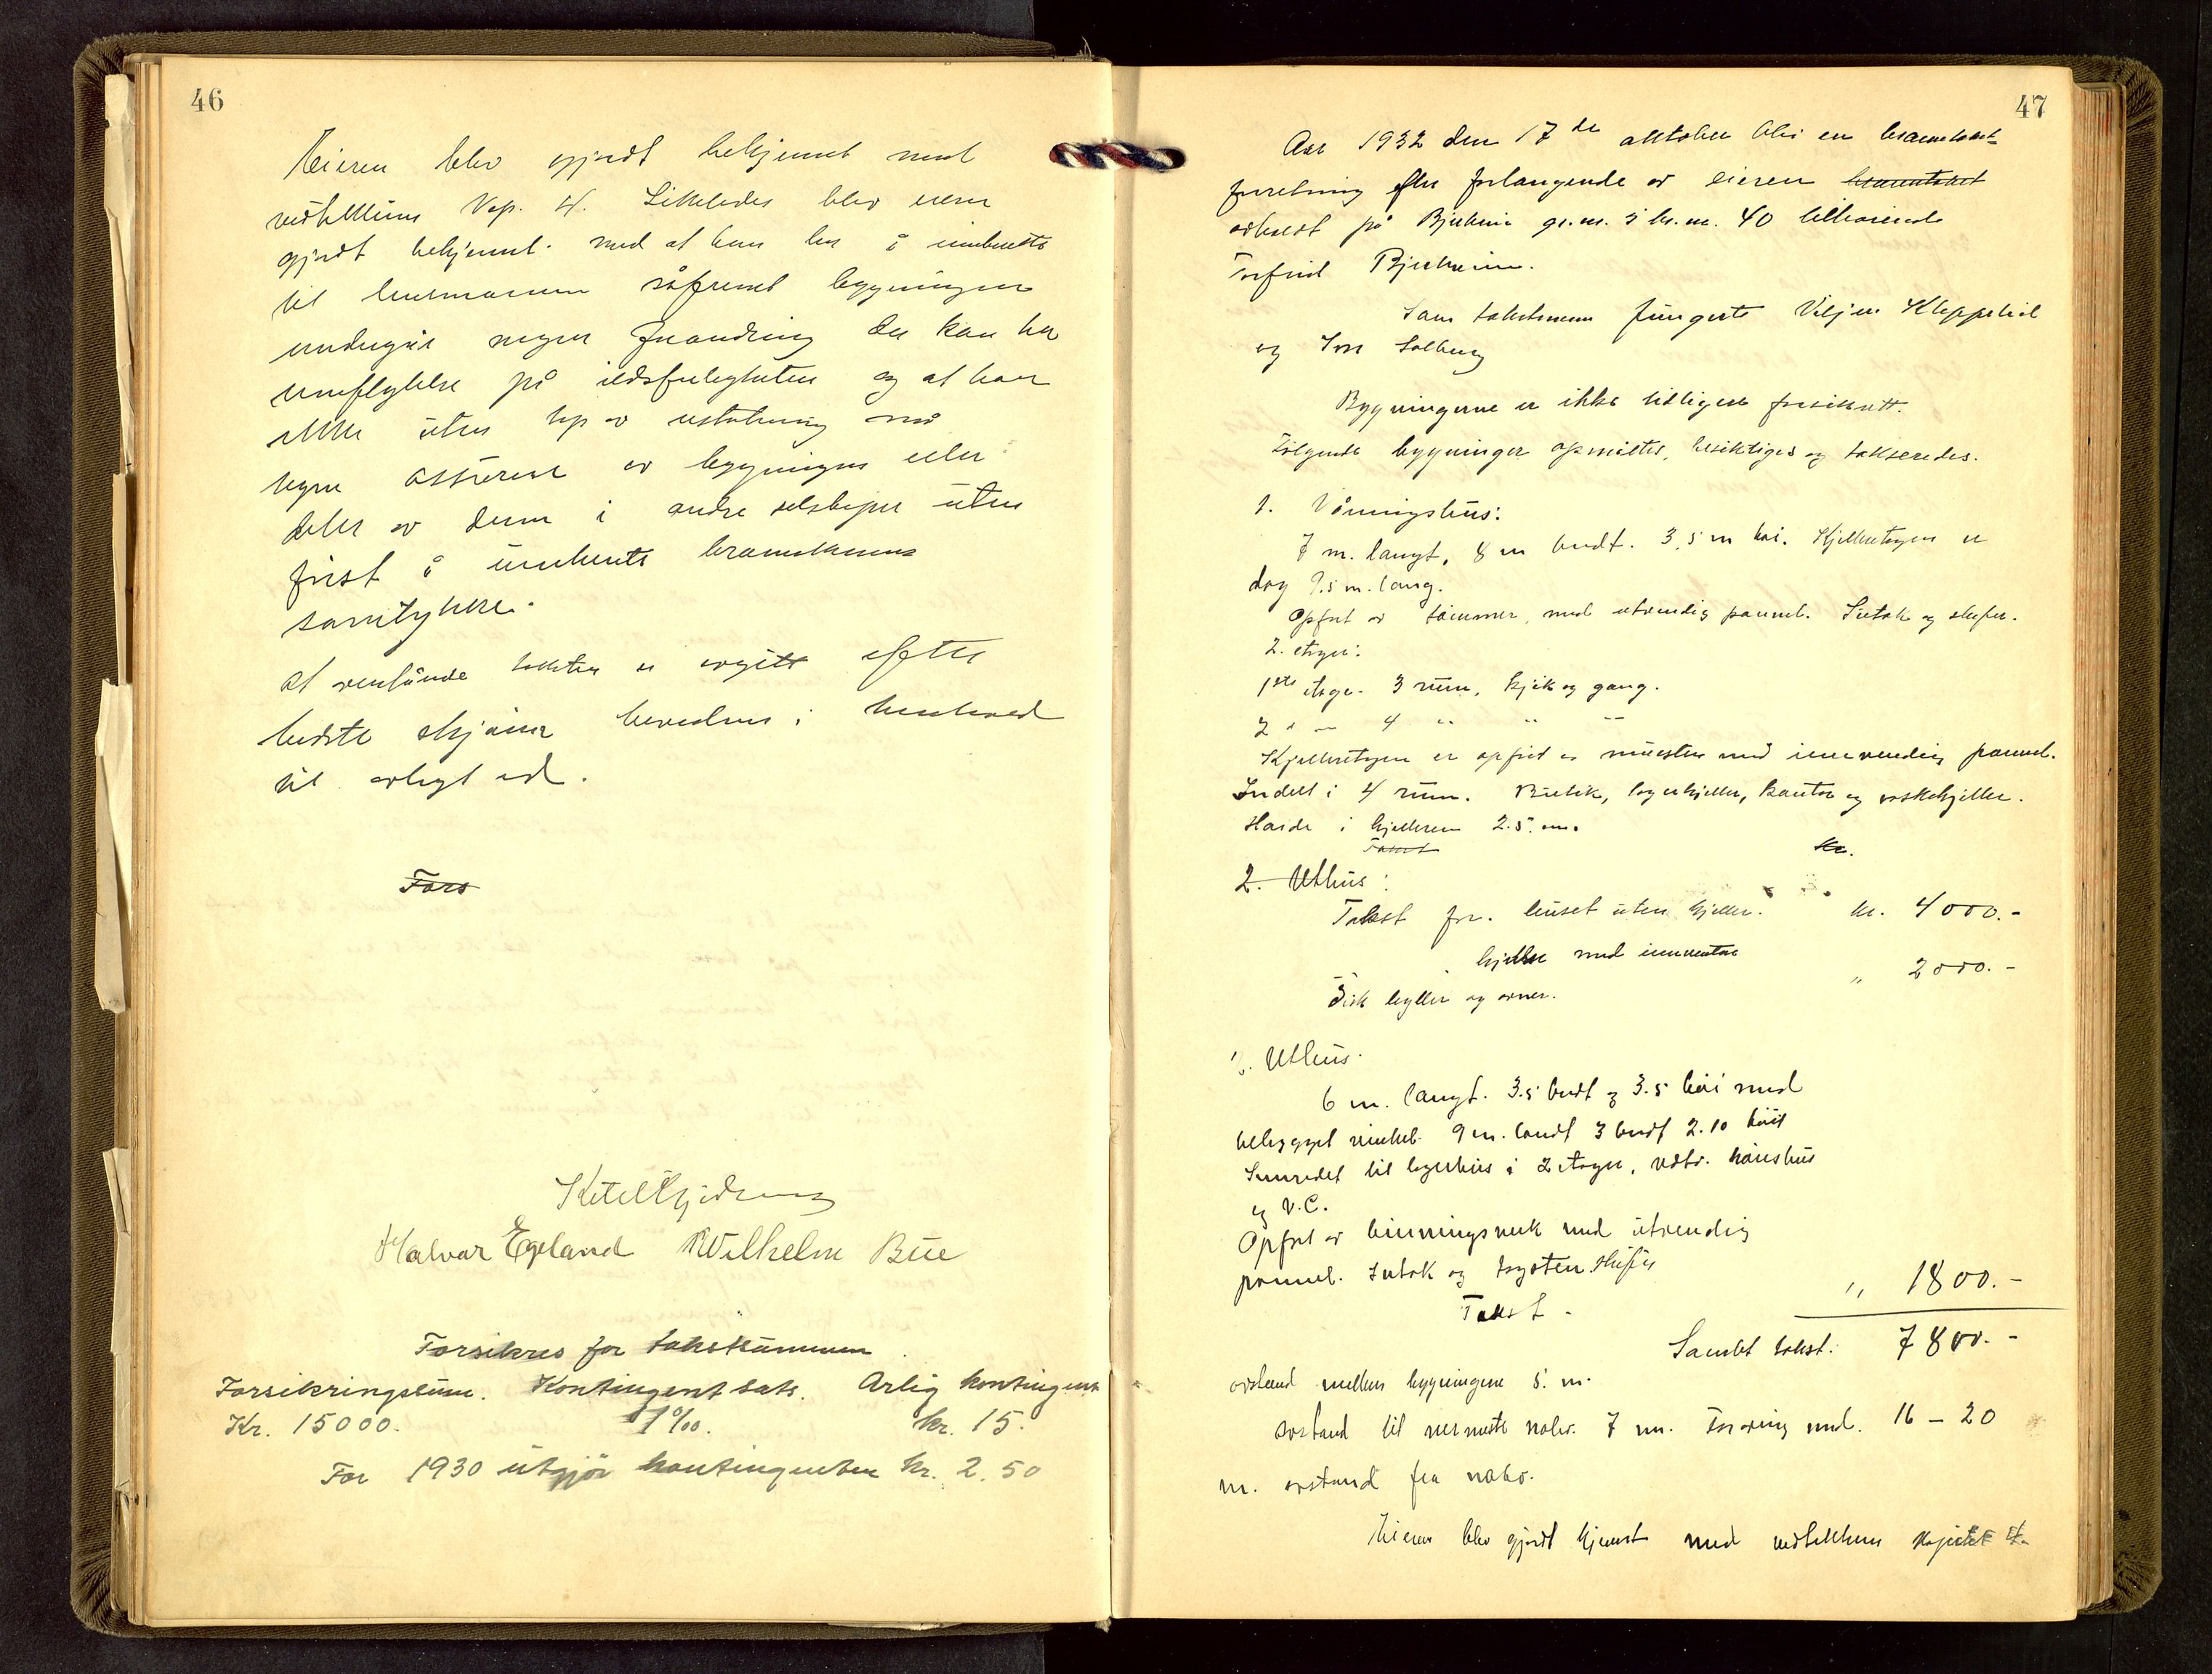 46
Eieren blev gjordt bekjennt med
vedtektenes Kap. 4. Likeledes blev eieren
gjordt bekjennt med at han har å innberette
til lensmannen såfremt bygningen
undergår nogen forandring der kan ha
innflytelse på ildsfarligheten og at han
ikke uten tap av erstatning må
tegne assuranse av bygningen eller
deler av denne i andre selskaper uten
først å innhente brannkassens
samtykke.
At ovenstående taksten er avgitt efter
bedste skjønn bevidnes i henhold
til avlagt ed.
Fors
Halvar Egeland Wilhelm Bue
Forsikres for takstsummen
Forsikringssum. Kontingentsats. Årlig kontingent
Kr. 15000. 1‰. kr. 15.
For 1930 utgjør kontingenten kr. 2.50
47
Aar 1932 den 17de oktober blev en branntakst-
forretning efter forlangende av eieren branntakst
avholdt på Bjerheim gr.nr. 5 br.nr. 40 tilhørende
Torfind Bjerheim.
Som takstmenn fungerte Viljen Kleppelid
og Tore Solberg
Bygningerne er ikke tidligere forsikrett.
Følgende bygninger opmåltes, besiktiges og takseredes.
1. Våningshus:
7 m. langt, 8 m bredt. 3,5 m høi. Kjelleretagen er
dog 9.5 m. lang.
Opført av tømmer, med utvendig pannel. Sutak og skifer.
2. etager:
1ste etage. 3 rum, kjøk og gang.
2 " — 4 " " "
Kjelleretagen er opført av mursten med innvendig pannel.
Indelt i 4 rum. Butik, lagerkjeller, kontor og vaskekjeller.
Høide i kjelleren 2.5. m.
Takst kr.
2. Uthus:
Takst for huset uten kjeller. kr. 4000.-
kjeller med inventar
Disk hyller og ovner. " 2000.-
2. Uthus.
6 m. langt. 3.5 bredt og 3.5 høi med
tilbygget vinkel. 9 m. landt 3 bredt 2.10 høit
Innredet til lagerhus i 2 etager, vedb. hønshus
og V.C.
Opført av binningsverk med utvendig
pannel. Sutak og skifer
Takst - " 1800.-
Samlet takst. 7800.-
avstand mellem bygningene 5. m.
avstand til nermeste nabo. 7 m. 16 — 20
m. avstand fra nabo.
Eieren blev gjordt kjennt med vedtektenes kapitel 4.